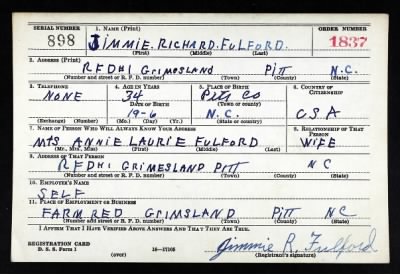 SERIAL NUMBER 1. NAME (Print) ORDER NUMBER
898 JIMMIE. RICHARD. FULFORD. 1837
(First) (Middle) (Last)
2. ADDRESS (Print)
RFDH1 GRIMESLAND PITT N.C.
(Number and street or R. F. D. number) (Town) (County) (State)
3. TELEPHONE 4. AGE IN YEARS 5. PLACE OF BIRTH 6. COUNTRY OF CITIZENSHIP
NONE 34 Pitt Co
DATE OF BIRTH (Town or county)
19-6 N.C. USA
(Exchange) (Number) (Mo.) (Day) (Yr.) (State or country)
7. NAME OF PERSON WHO WILL ALWAYS KNOW YOUR ADDRESS 8. RELATIONSHIP OF THAT PERSON
MRS ANNIE LAURIE FULFORD WIFE
(Mr., Mrs., Miss) (First) (Middle) (Last)
9. ADDRESS OF THAT PERSON
RFDH1 GRIMESLAND PITT NC
(Number and street or R. F. D. number) (Town) (County) (State)
10. EMPLOYER'S NAME
SELF
11. PLACE OF EMPLOYMENT OR BUSINESS
FARM RED GRIMSLAND PITT NC
(Number and street or R. F. D. number) (Town) (County) (State)
I AFFIRM THAT I HAVE VERIFIED ABOVE ANSWERS AND THAT THEY ARE TRUE.
REGISTRATION CARD
D. S. S. Form 1 (over) 16—17105 Jimmie R. Fulford
(Registrant's signature)